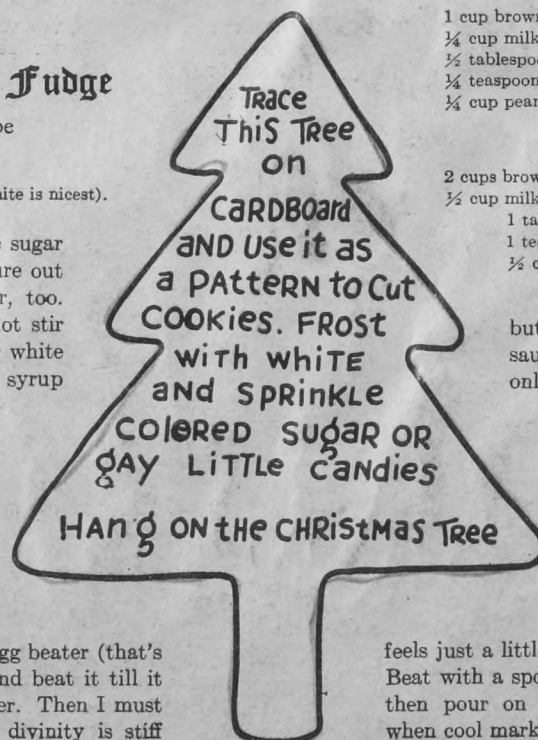 Fudge
ite is nicest).
sugar
ure out
r, too.
ot stir
white
syrup
gg beater (that's
nd beat it till it
er. Then I must
divinity is stiff
TRace
ThiS TRee
on
CaRDBoaRd
aND Use it as
a PAtteRN to Cut
COOKiES. FRoSt
wiTH whiTE
aNd SPRiNKLe
COloRED SugaR OR
gAY LiTTLe CaNdies
HAng ON tHe CHRiStMAS TRee
1 cup brown
¼ cup milk
½ tablespoo
¼ teaspoon
¼ cup pean
2 cups brow
½ cup milk
1 ta
1 te
½ c
but
sau
onl
feels just a little
Beat with a spo
then pour on
when cool mark